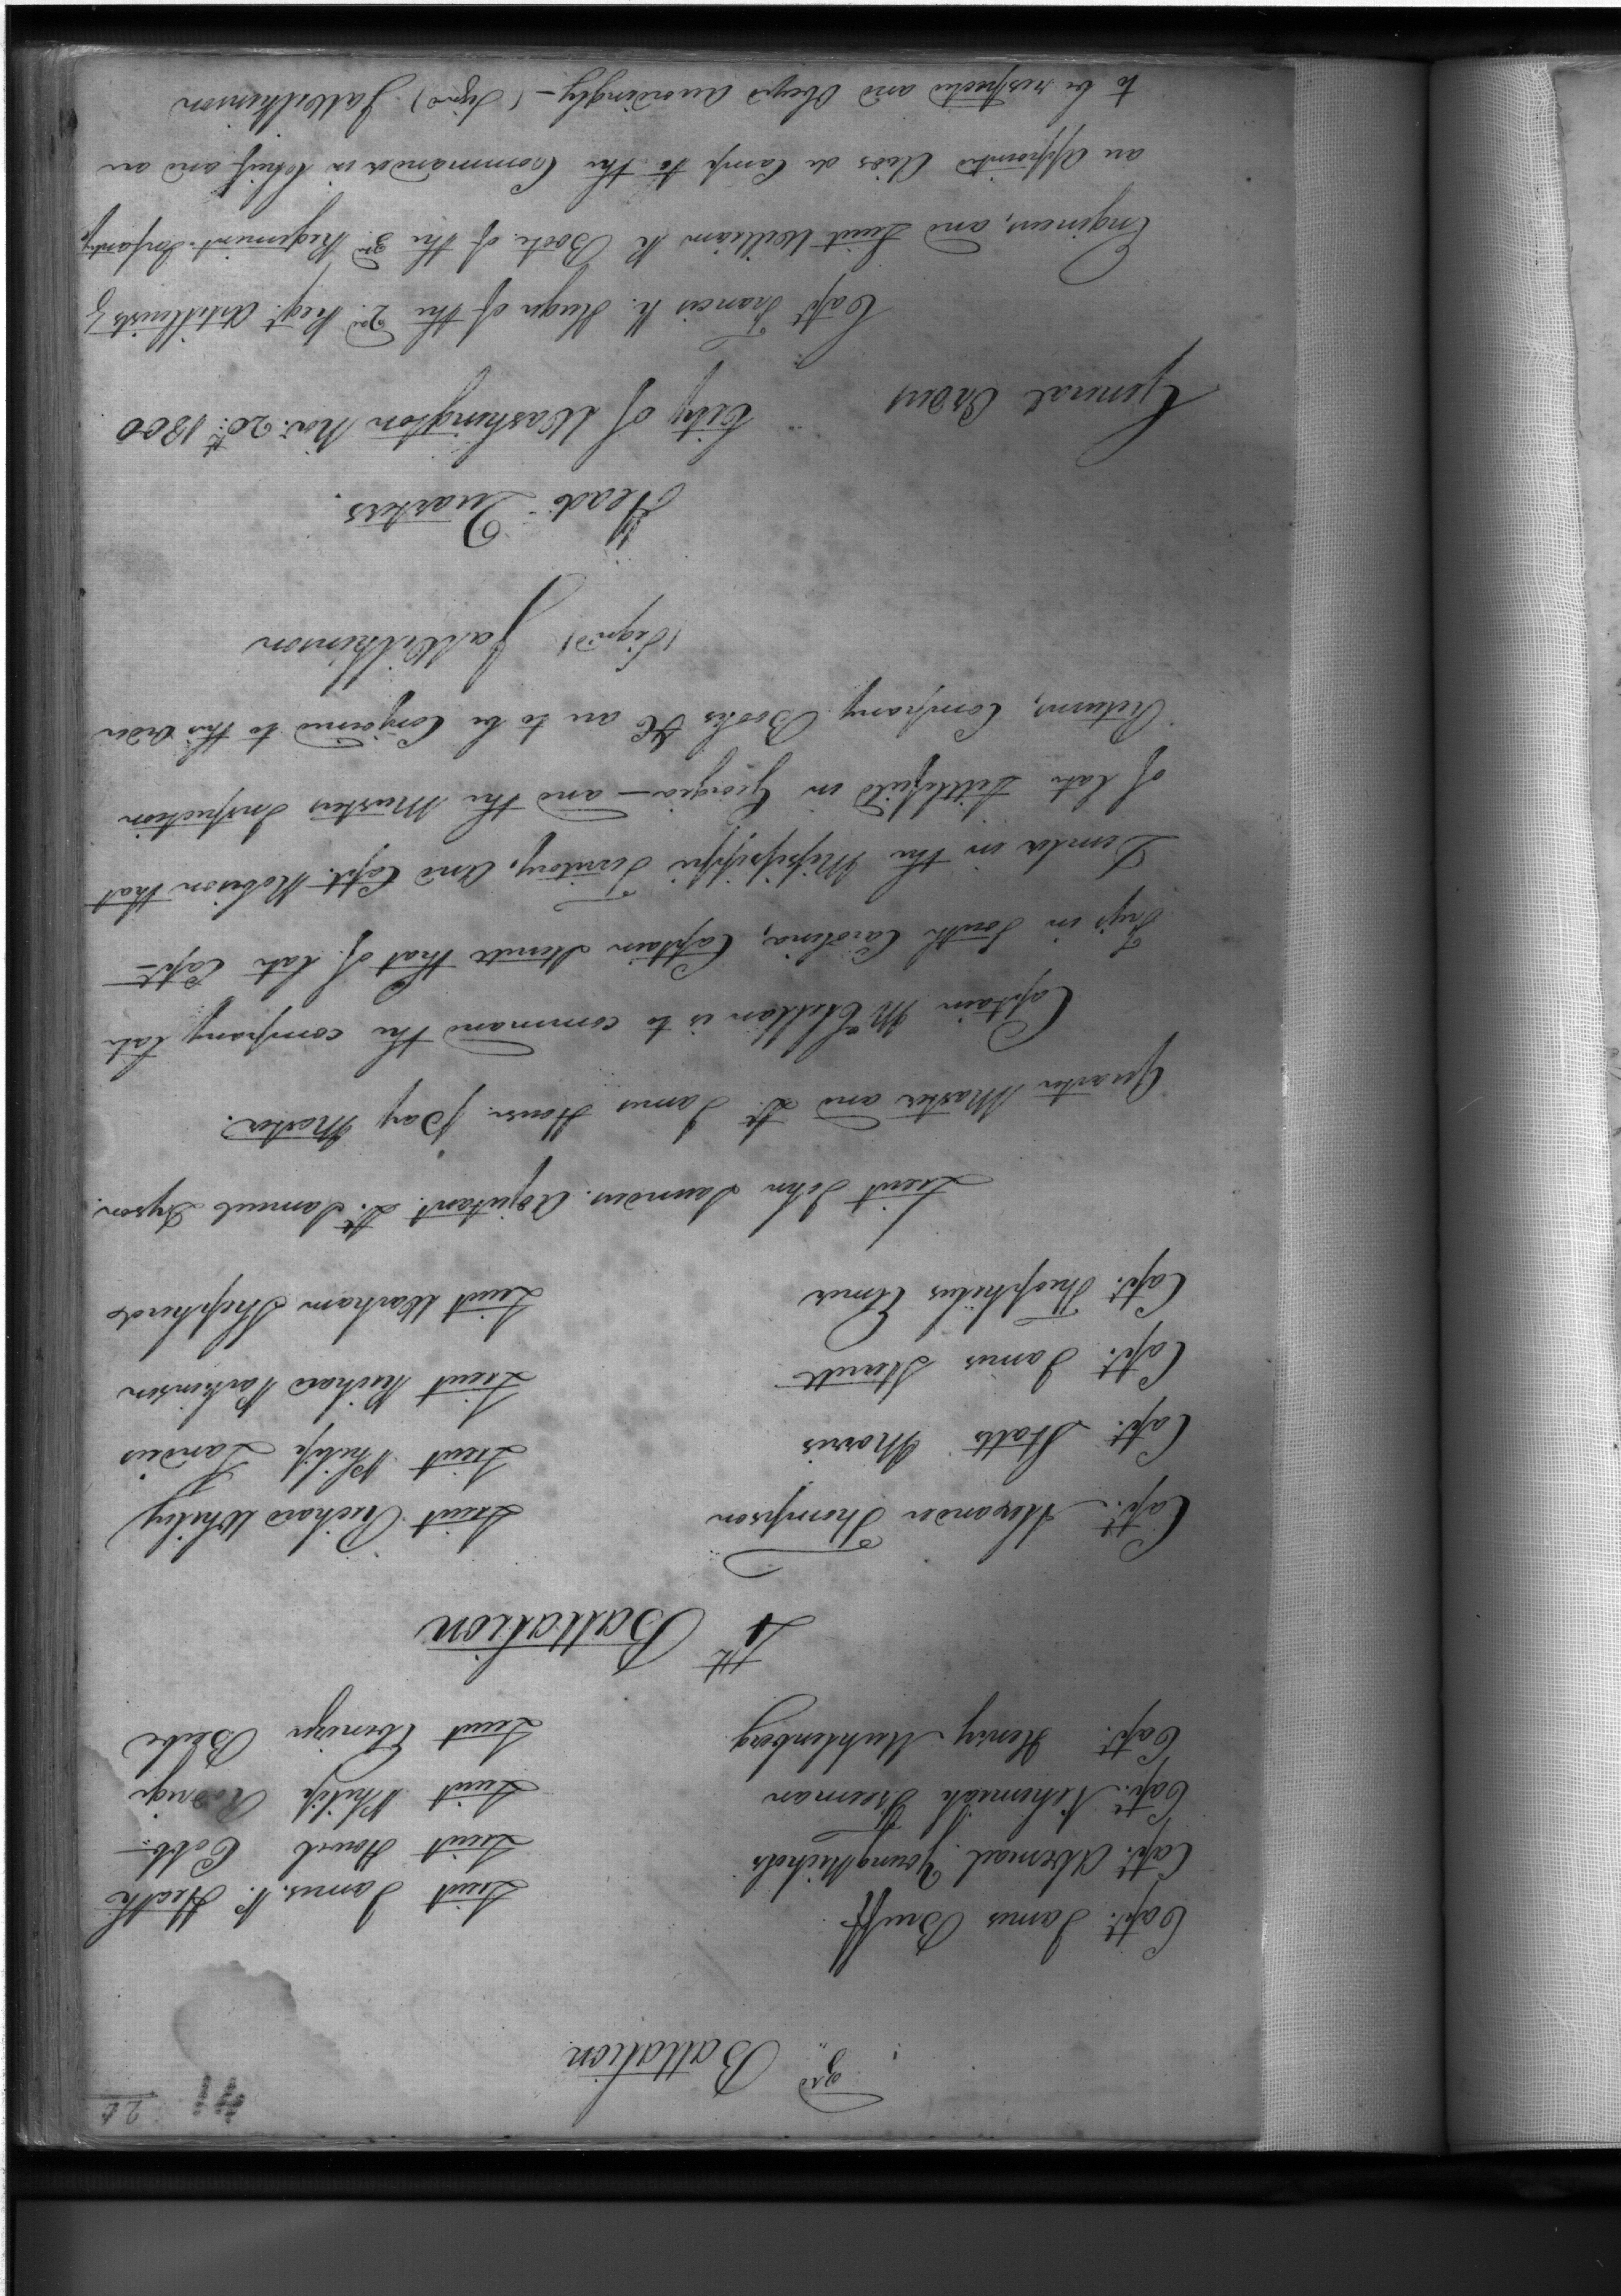 41 26
3rd Battalion
Capt. James Bruff Lieut James P. Heath
Capt. Abemael Young Nichols Lieut Howel Cobb
Capt. Nehemiah Freeman Lieut Philip Rodrige
Capt. Henry Muhlenberg Lieut Ebenizer Beebe
4th Battalion
Capt. Alexander Thompson Lieut Richard Whiley
Capt. Staats Morris Lieut Philip Landais
Capt. James Sterrett Lieut Michael Parkinson
Capt. Theophilus Elmer Lieut Warham Shepherd
Lieut John Saunders Adjutant Lt. Samuel Dyson
Quarter Master and Lt. James House Pay Master.
Captain McClellan is to command the company late
Frys in South Carolina, Captain Sterrett that of late Capt
Demler in the Mississippi Territory, and Capt. Robeson that
of late Littlefield in Georgia — and the Musters Inspection
Returns, Company Books &c are to be Conformed to this Order
(Signd) Ja Wilkinson
Head Quarters.
General Orders City of Washington Nov. 20th 1800
Capt Francis K. Huger of the 2nd Regt. Artillerists &
Engineers, and Lieut William R Boote of the 3rd Regiment Infantry
are Appointed Aids de Camp to the Commander in Chief and are
to be respected and Obeyed Accordingly — (Signd) Ja Wilkinson